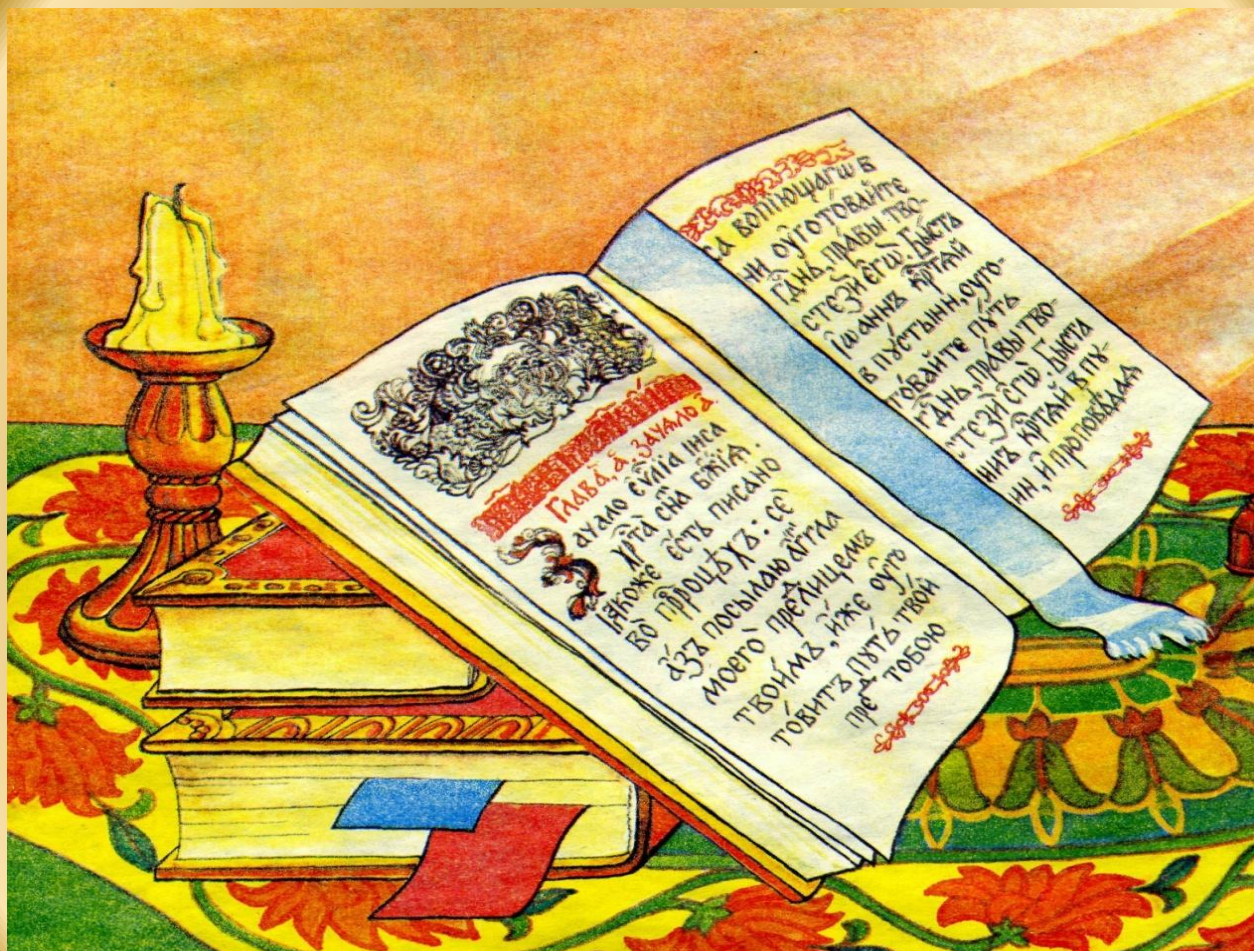 Глава̀, а҃, зачало а҃.
ачало є҆ѵⷢ҇лїа і҆и҃са
хрⷭ҇та̀ сн҃а бж҃їѧ:
ꙗ҆́коже є҆́сть писано
во прⷪ҇ро́цѣхъ: сѐ
а҆́зъ посылаю а҆́гг҃ла
моего̀ предⸯ лицемъ
твои́мъ, и҆́же ᲂу҆гⷪ
то́витъ пу́ть тво́й
предⸯ тобою
са вопїющагѡ в
ни ᲂу҆гото́вайте
гдⷭ҇нь, пра́вы тво-
стезѝ є҆гѡ̀. Бы́сть
і҆ѡа́ннъ кр҃тѧ́й
в пу́стыни, ᲂуго-
то́вайте пу́ть
гдⷭ҇нь, пра́вы тво-
стезѝ є҆гѡ̀. Бы́сть
ннъ кр҃тѧ́й в пу-
ни, и҆ проповѣ́даѧ